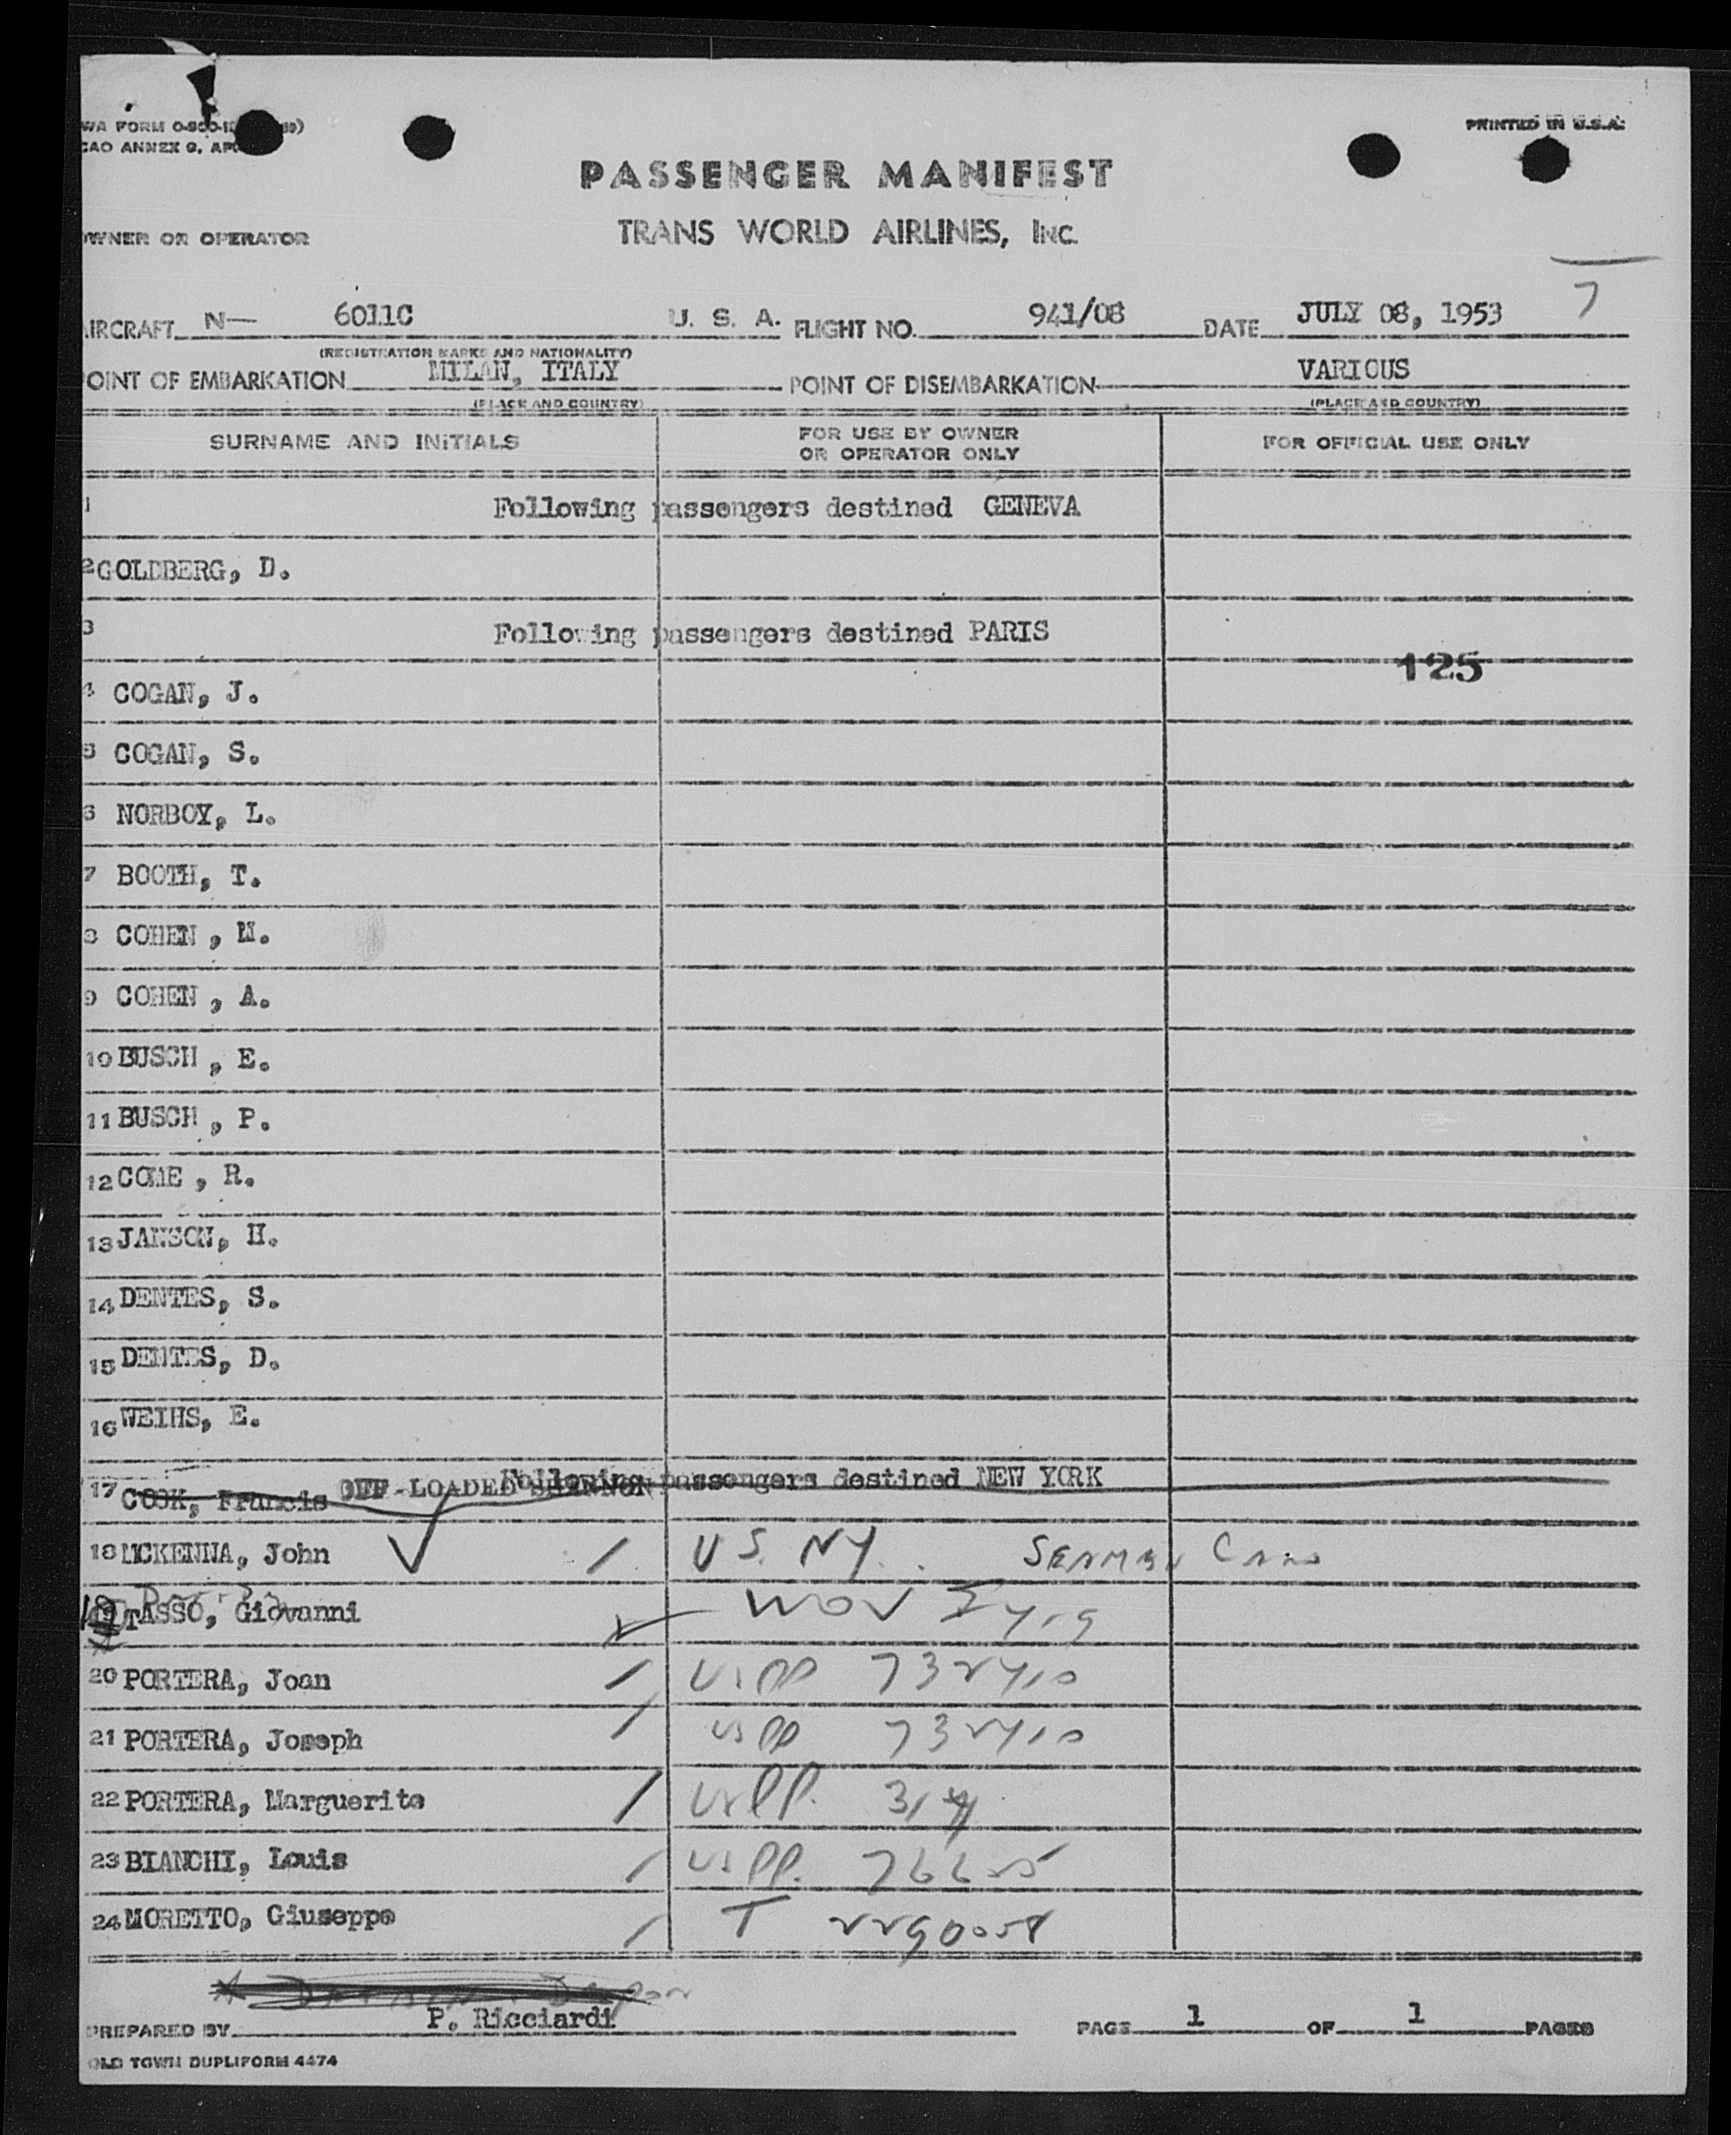 PRINTED IN U.S.A.
PASSENGER MANIFEST
TRANS WORLD AIRLINES, INC.
OWNER OR OPERATOR
7
AIRCRAFT N— 6011C U. S. A. FLIGHT NO. 941/08 DATE JULY 08, 1953
(REGISTRATION MARKS AND NATIONALITY)
POINT OF EMBARKATION MILAN, ITALY POINT OF DISEMBARKATION VARIOUS
(PLACE AND COUNTRY) (PLACE AND COUNTRY)
SURNAME AND INITIALS FOR USE BY OWNER OR OPERATOR ONLY FOR OFFICIAL USE ONLY
1 Following passengers destined GENEVA
2 GOLDBERG, D.
3 Following passengers destined PARIS
125
4 COGAN, J.
5 COGAN, S.
6 NORBOY, L.
7 BOOTH, T.
8 COHEN , M.
9 COHEN , A.
10 BUSCH , E.
11 BUSCH , P.
12 COME , R.
13 JANSON, H.
14 DENTES, S.
15 DENTES, D.
16 WEIHS, E.
17 COOK, Francis OFF-LOADED SHANNON Following passengers destined NEW YORK
18 MCKENNA, John US. NY. SEAMAN CARD
19 TASSO, Giovanni
20 PORTERA, Joan USPP 732410
21 PORTERA, Joseph USPP 732410
22 PORTERA, Marguerite USPP.
23 BIANCHI, Louis USPP.
24 MORETTO, Giuseppe T
PREPARED BY P. Ricciardi PAGE 1 OF 1 PAGES
OLD TOWN DUPLIFORM 4474